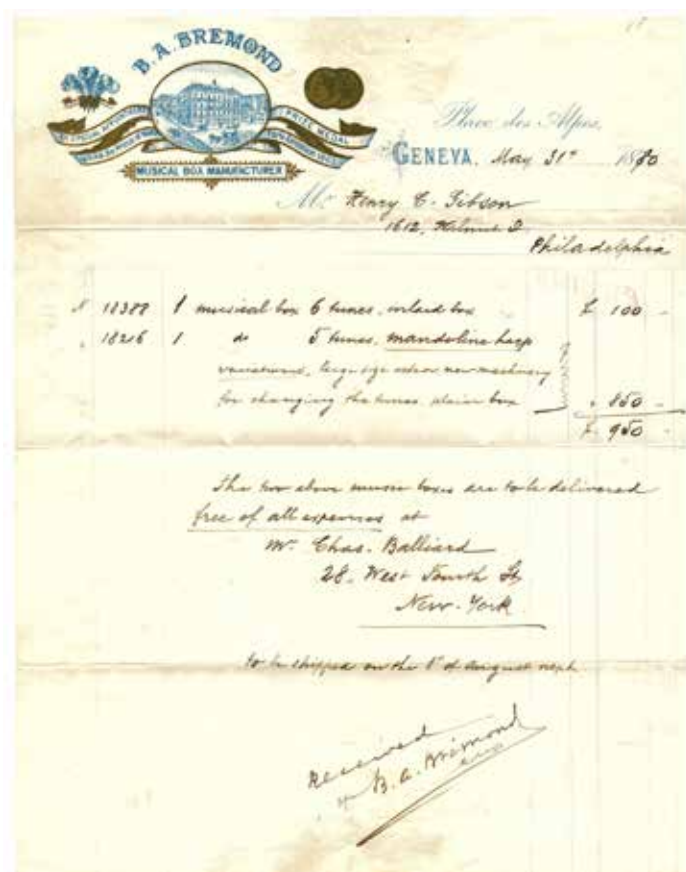 B. A. BREMOND
BY SPECIAL APPOINTMENT
PRIZE MEDAL
MUSICAL BOX MANUFACTURER
Place des Alpes,
GENEVA, May 31st 1880
Mr Henry C. Gibson
1612, Walnut St
Philadelphia
N 18388 1 musical box 6 tunes, inlaid box £ 100 -
" 18216 1 do 5 tunes, mandoline harp
large size new machinery
for changing the tunes plain box " 850 -
£ 950 -
The two above music boxes are to be delivered
free of all expenses at
Mr. Chas. Balliard
28. West Fourth St
New-York
to be shipped on the of August next
Received
B. A. Bremond